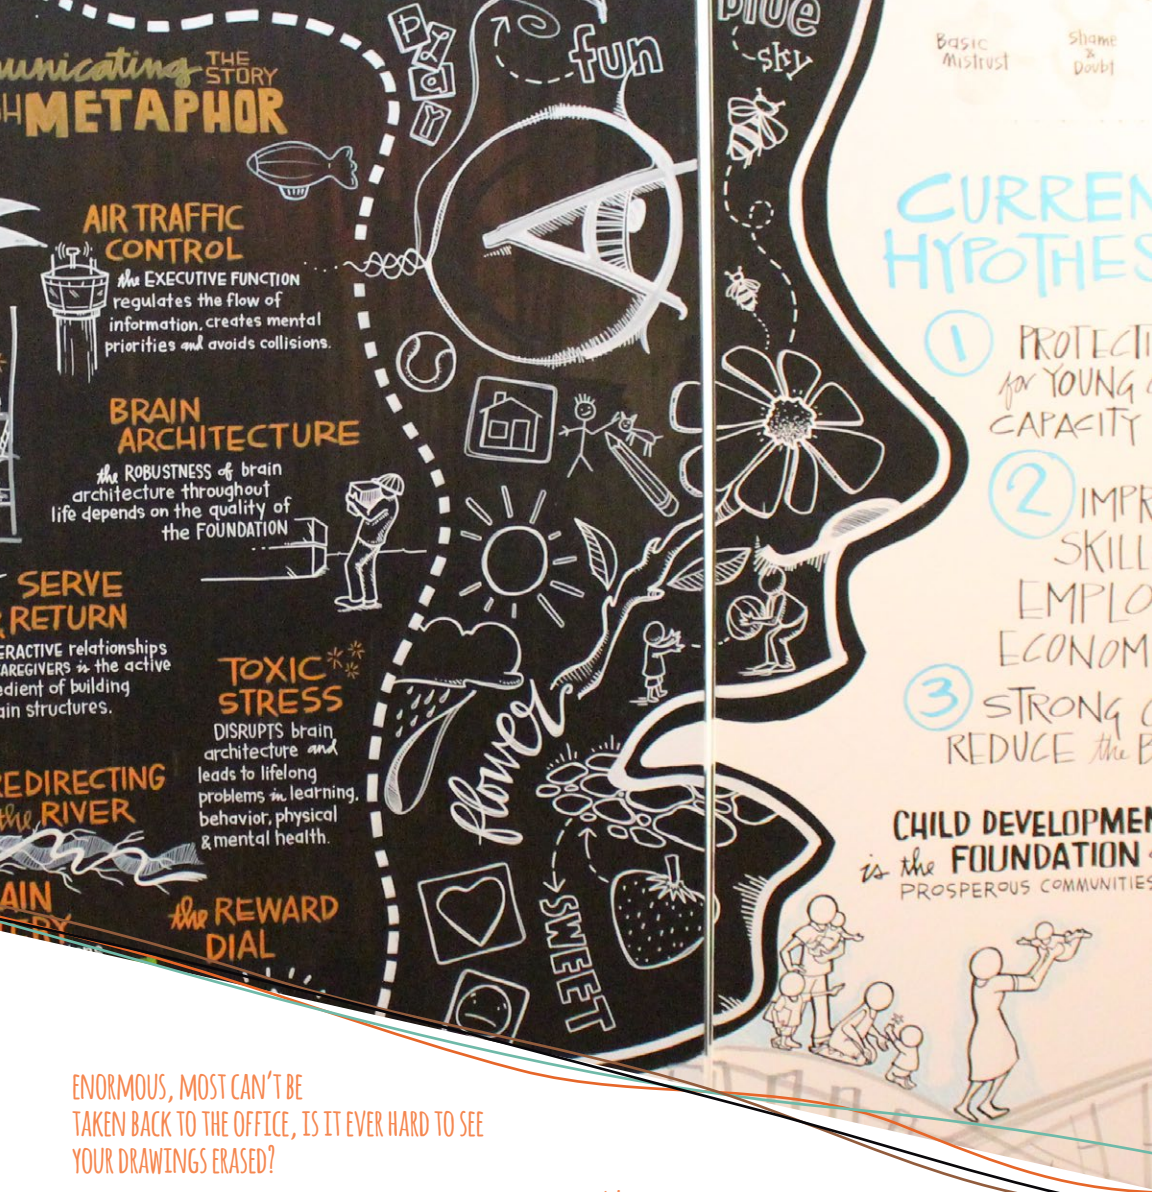 THE
STORY
METAPHOR
AIR TRAFFIC
CONTROL
the EXECUTIVE FUNCTION
regulates the flow of
information, creates mental
priorities and avoids collisions.
BRAIN
ARCHITECTURE
the ROBUSTNESS of brain
architecture throughout
life depends on the quality of
the FOUNDATION
SERVE
RETURN
relationships
in the active
of building
structures.
TOXIC
STRESS
DISRUPTS brain
architecture and
leads to lifelong
problems in learning,
behavior, physical
& mental health.
REDIRECTING
the RIVER
the REWARD
DIAL
PLAY
fun
blue
sky
flower
SWEET
Basic
Mistrust
Shame
&
Doubt
CURREN
HYPOTHES
1 PROTECTI
for YOUNG
CAPACITY
2 IMPR
SKILL
EMPLO
ECONOM
3 STRONG C
REDUCE the B
CHILD DEVELOPMEN
is the FOUNDATION
PROSPEROUS COMMUNITIES
ENORMOUS, MOST CAN'T BE
TAKEN BACK TO THE OFFICE, IS IT EVER HARD TO SEE
YOUR DRAWINGS ERASED?